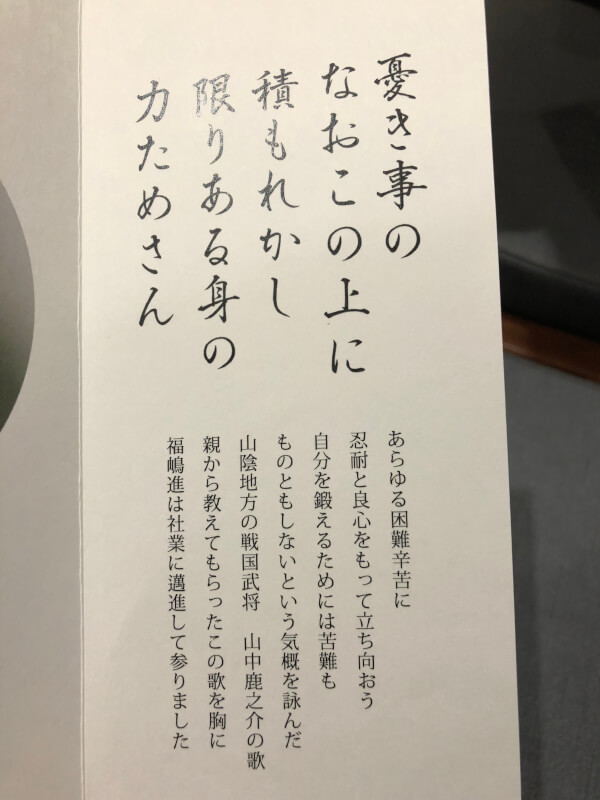 憂き事の
なおこの上に
積もれかし
限りある身の
力ためさん
あらゆる困難辛苦に
忍耐と良心をもって立ち向おう
自分を鍛えるためには苦難も
ものともしないという気概を詠んだ
山陰地方の戦国武将　山中鹿之介の歌
親から教えてもらったこの歌を胸に
福嶋進は社業に邁進して参りました